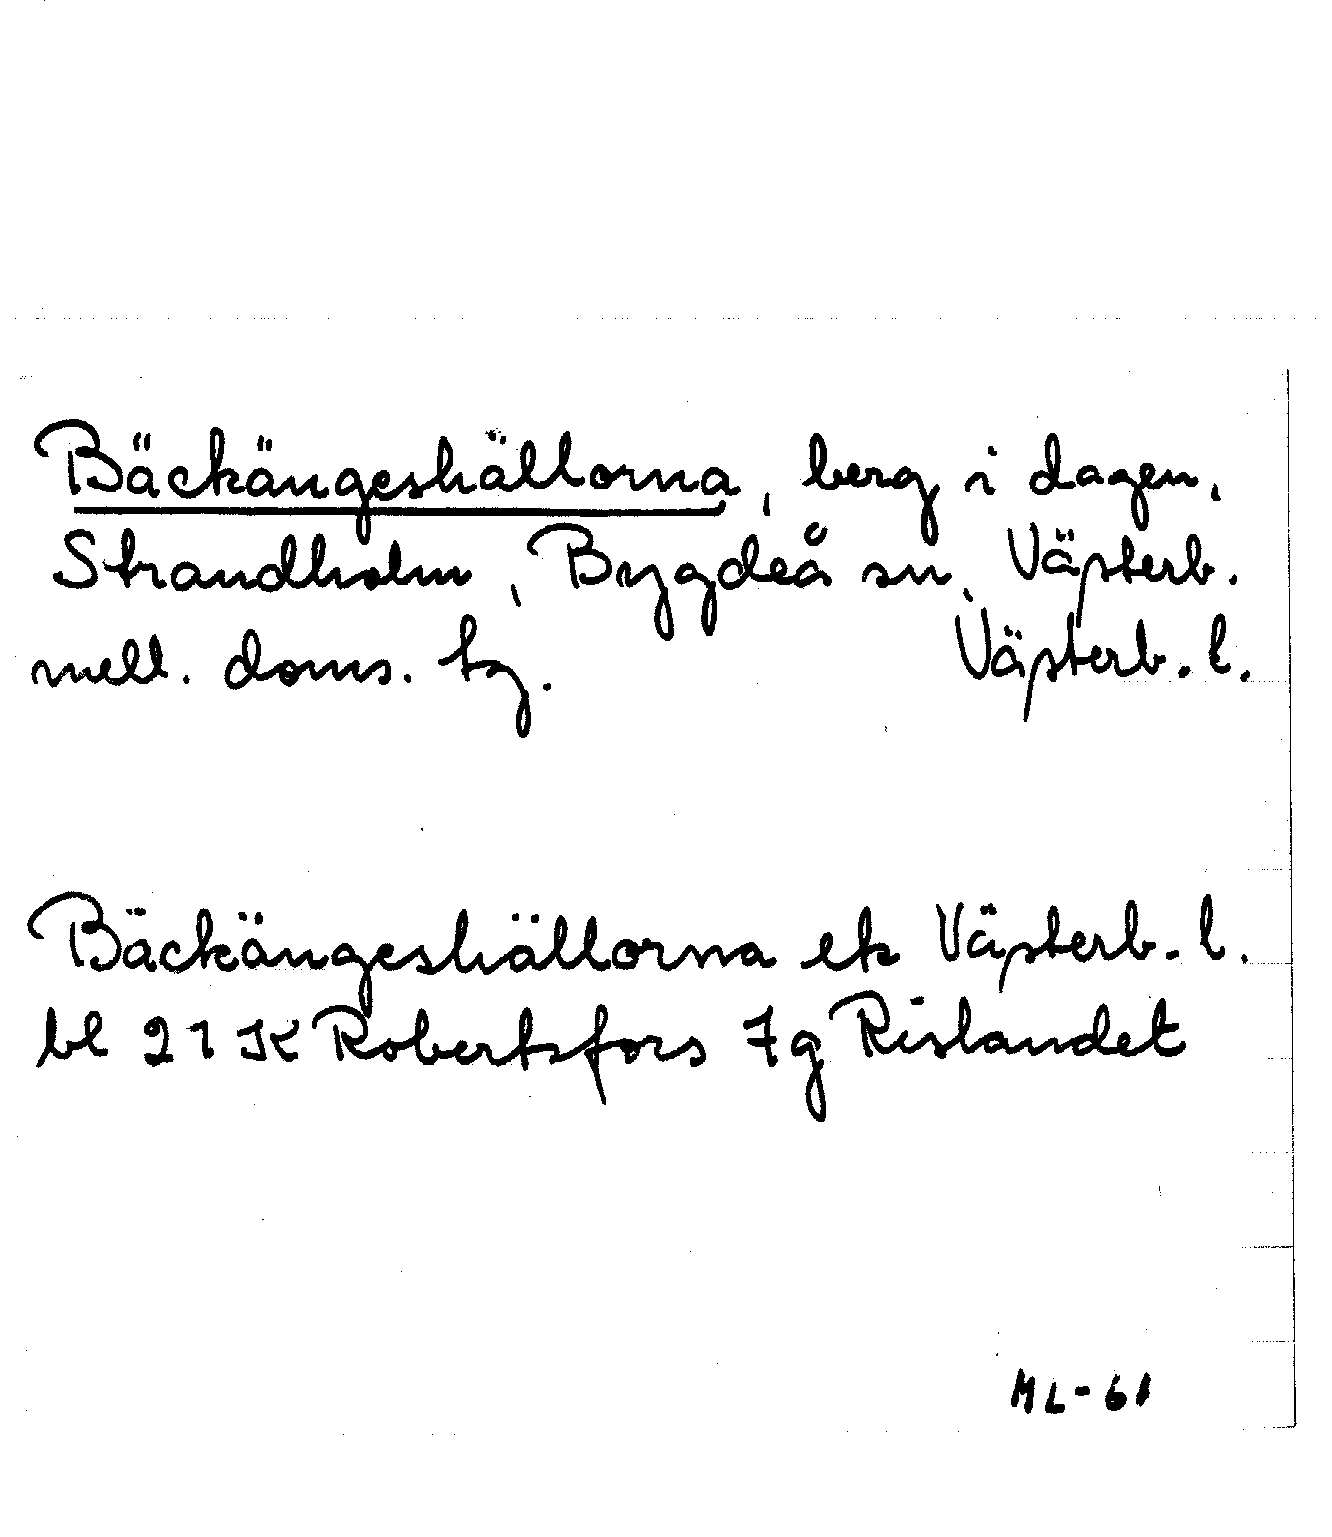 Bäckängeshällorna, berg i dagen,
Strandholm, Bygdeå sn, Västerb.
mell. doms. tg. Västerb. l.
Bäckängeshällorna ek Västerb. l.
bl 21 K Robertsfors 7g Rislandet
ML-61